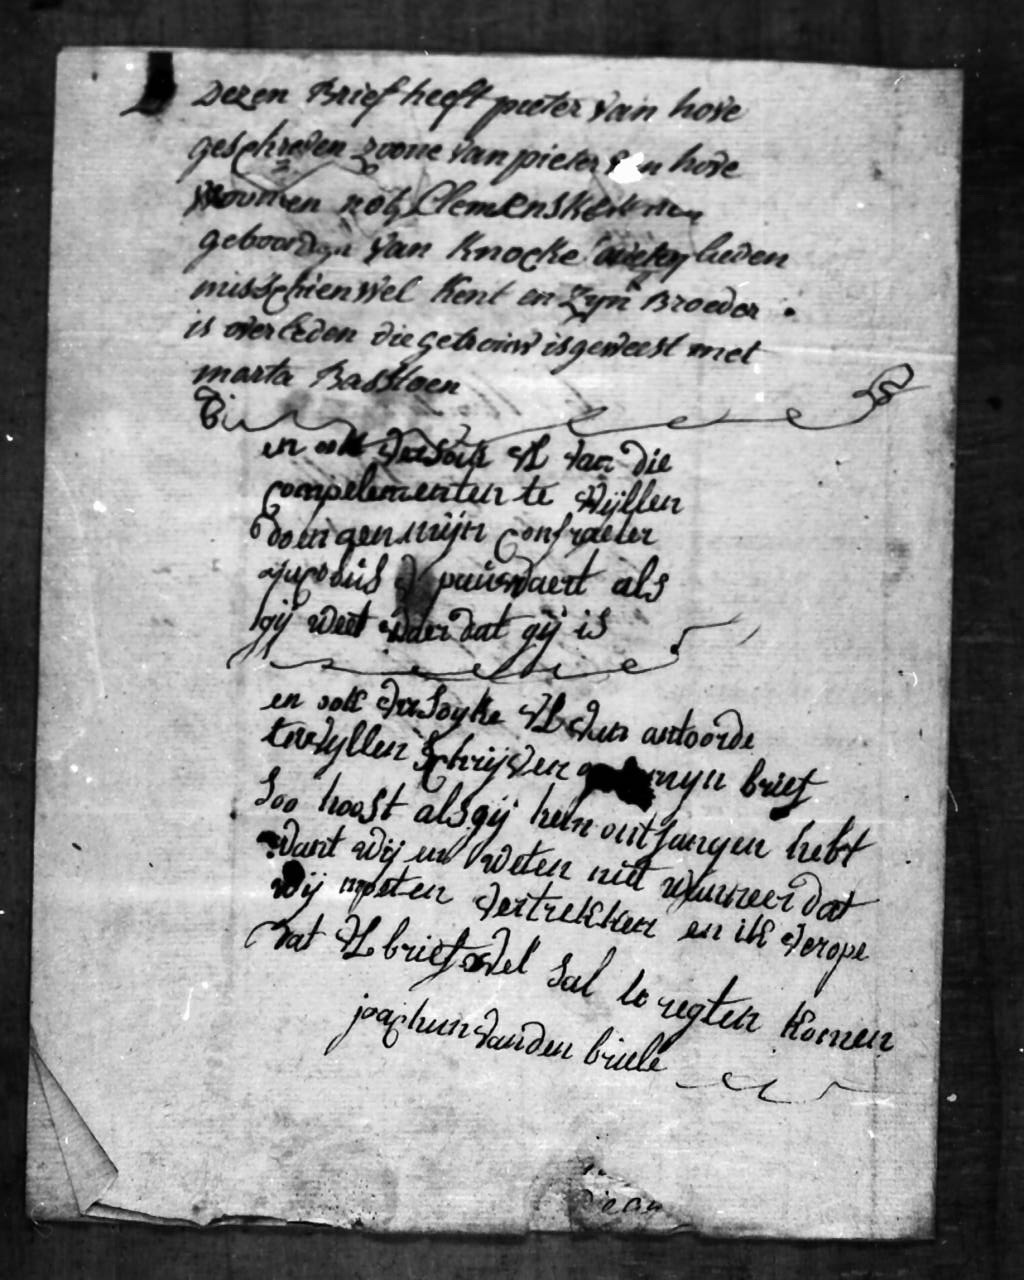 Dezen Brief heeft pieter van hove
geschreven zoone van pieter van hove
woonen Clemenskerke
gebooren van Knocke lieden
misschien wel Kent en Zyn Broeder
is overleden die getrouw is geweest met
marta Bastloen
en ook versoik Ul van die
compelementen te wijllen
doen aen mijn confraeter
jacobus pauwaert als
gij weet waer dat gij is
en ook versoyke Ul van antoorde
te wyllen schrijven op mijn brief
soo hoost als gij hem ontfangen hebt
want wij en weten niet wanneer dat
wij moeten vertrekken en ik verope
dat Ul brief wel sal te regten komen
joachim vanden briele